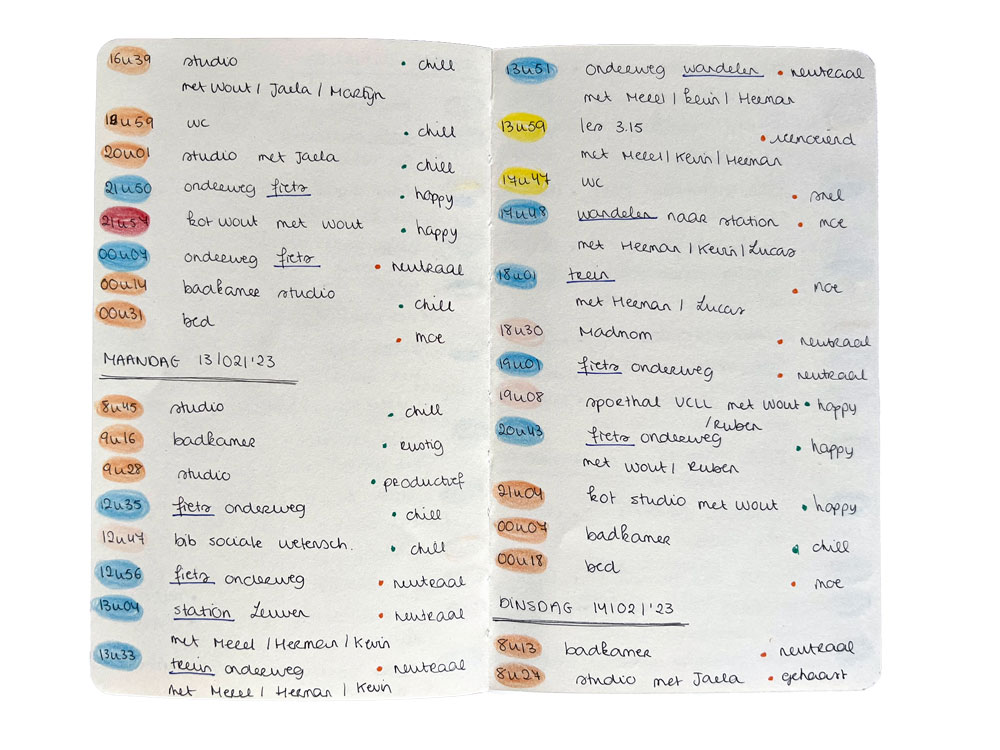 16u39 studio • chill
met Wout / Jaela / Martijn
18u59 wc • chill
20u01 studio met Jaela • chill
21u50 onderweg fiets • happy
21u57 kot Wout met Wout • happy
00u04 onderweg fiets • neutraal
00u14 badkamer studio • chill
00u31 bed • moe
MAANDAG 13/02/'23
8u45 studio • chill
9u16 badkamer • rustig
9u28 studio • productief
12u35 fiets onderweg • chill
12u47 bib sociale wetensch. • chill
12u56 fiets onderweg • neutraal
13u04 station Leuven • neutraal
met Merel / Herman / Kevin
13u33 trein onderweg • neutraal
met Merel / Herman / Kevin
13u51 onderweg wandelen • neutraal
met Merel / Kevin / Herman
13u59 les 3.15
met Merel / Kevin / Herman
17u47 wc • snel
17u48 wandelen naar station • moe
met Herman / Kevin / Lucas
18u01 trein • moe
met Herman / Lucas
18u30 Madmom • neutraal
19u01 fiets onderweg • neutraal
19u08 sporthal UCLL met Wout • happy
/ Ruben
20u43 fiets onderweg • happy
met Wout / Ruben
21u04 kot studio met Wout • happy
00u07 badkamer • chill
00u18 bed • moe
DINSDAG 14/02/'23
8u13 badkamer • neutraal
8u27 studio met Jaela • gehaast